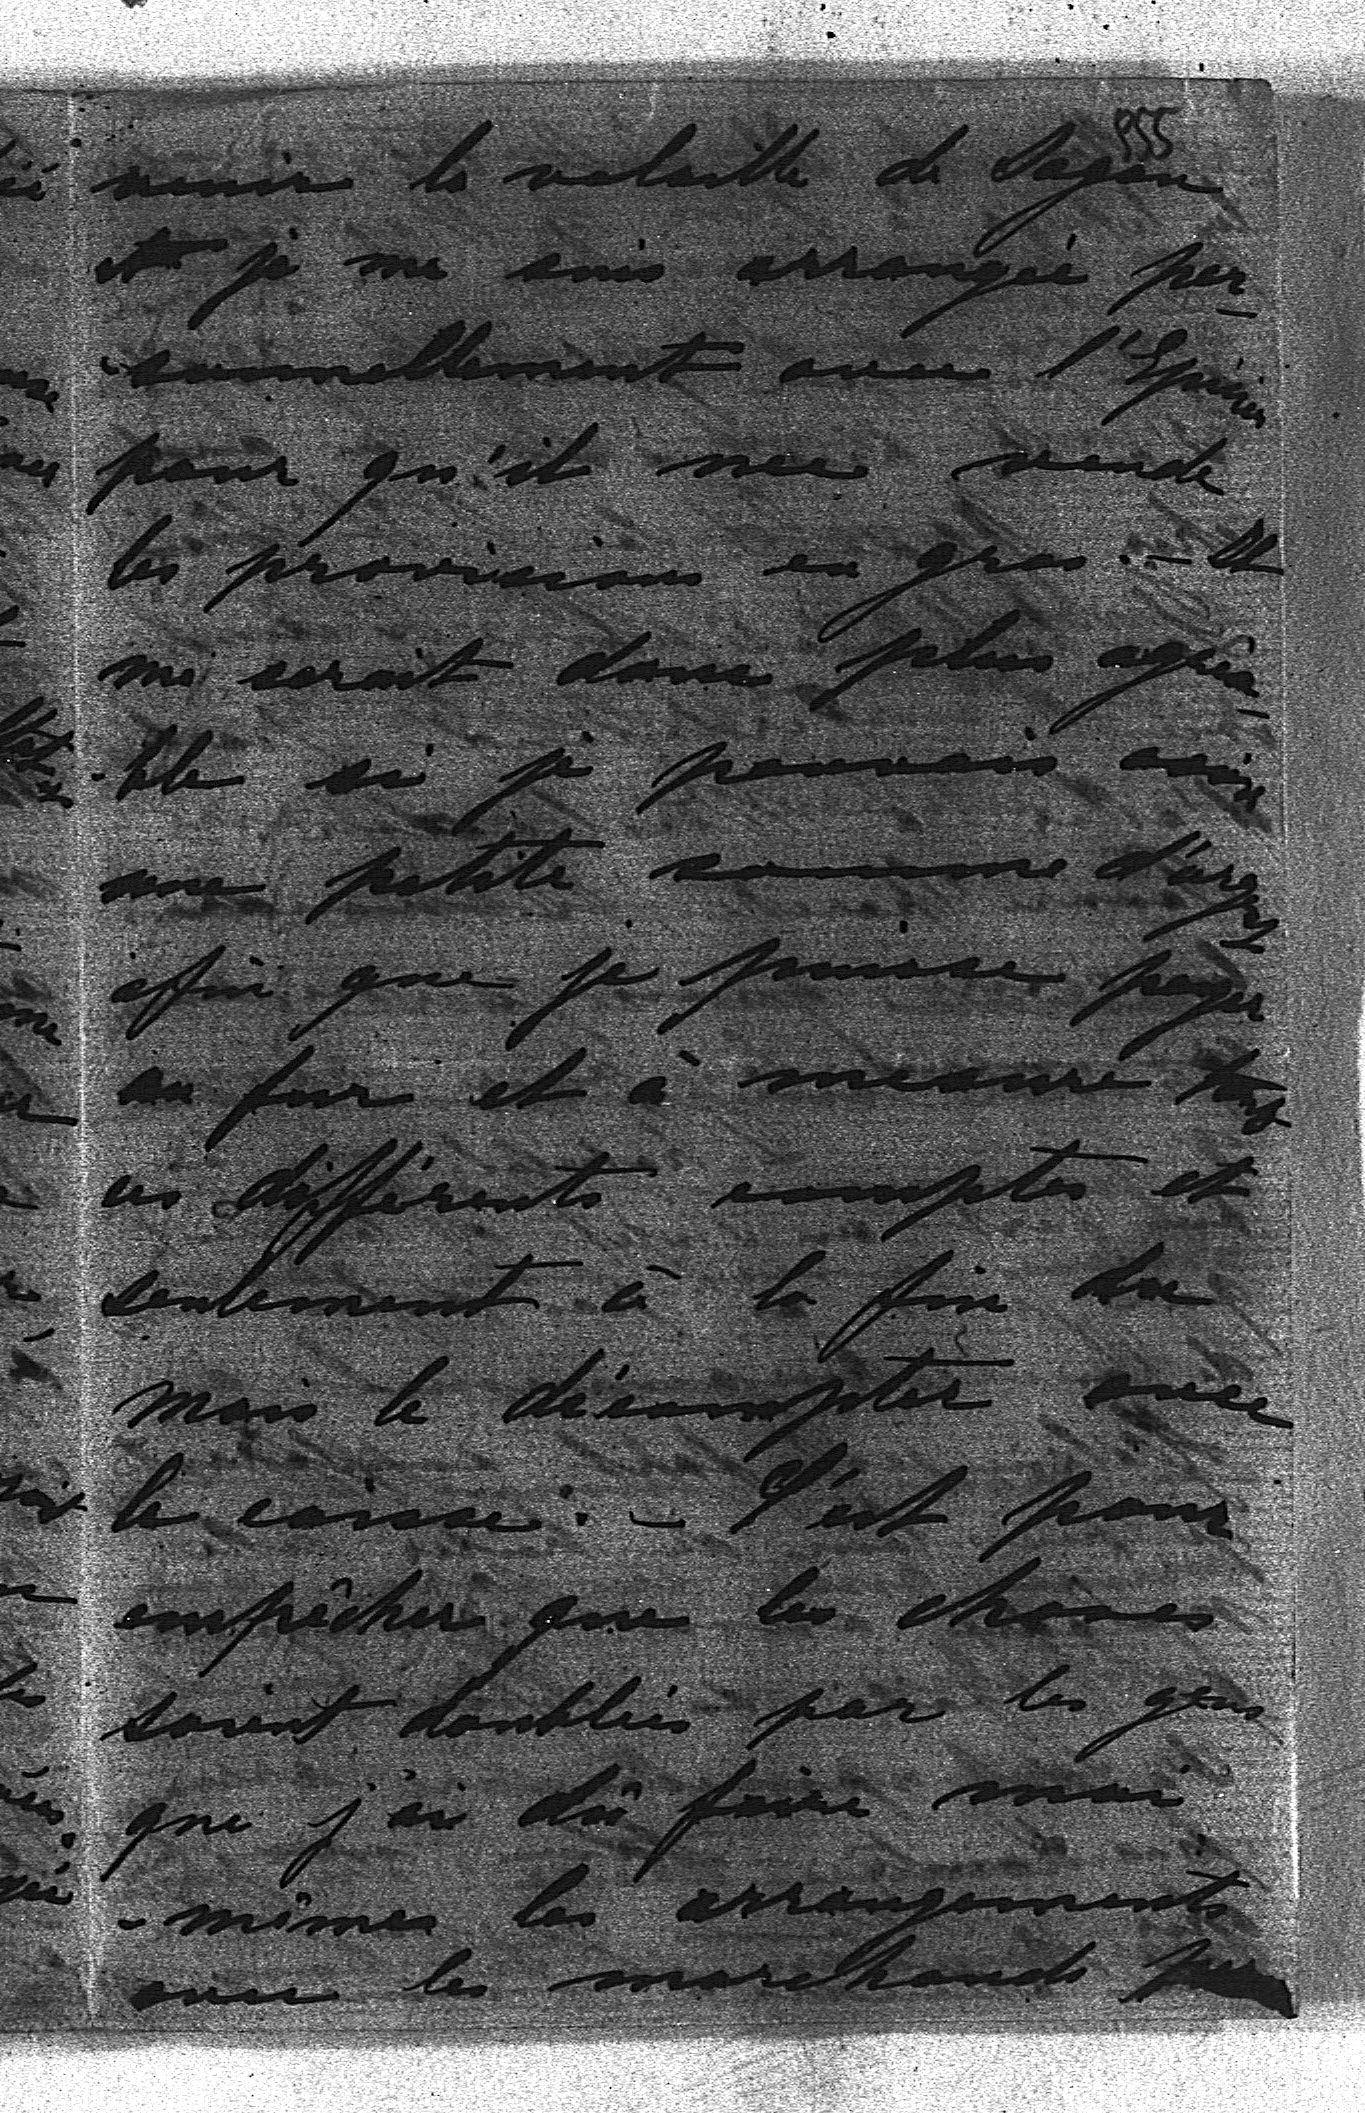 555
venir la volaille de Sagan
et je me suis arrangée per-
-sonnellement avec l'Epicier
pour qu'il me vende
les provisions en gros. - Il
me serait donc plus agréa-
-ble si je pouvais avoir
une petite somme d'argent
afin que je puisse payer
au fur et à mesure tous
ces différents comptes et
seulement à la fin du
mois le décompter avec
la caisse. - C'est pour
empêcher que les choses
soient doublées par les gens
que j'ai dû faire moi
-même les arrangements
avec les marchands